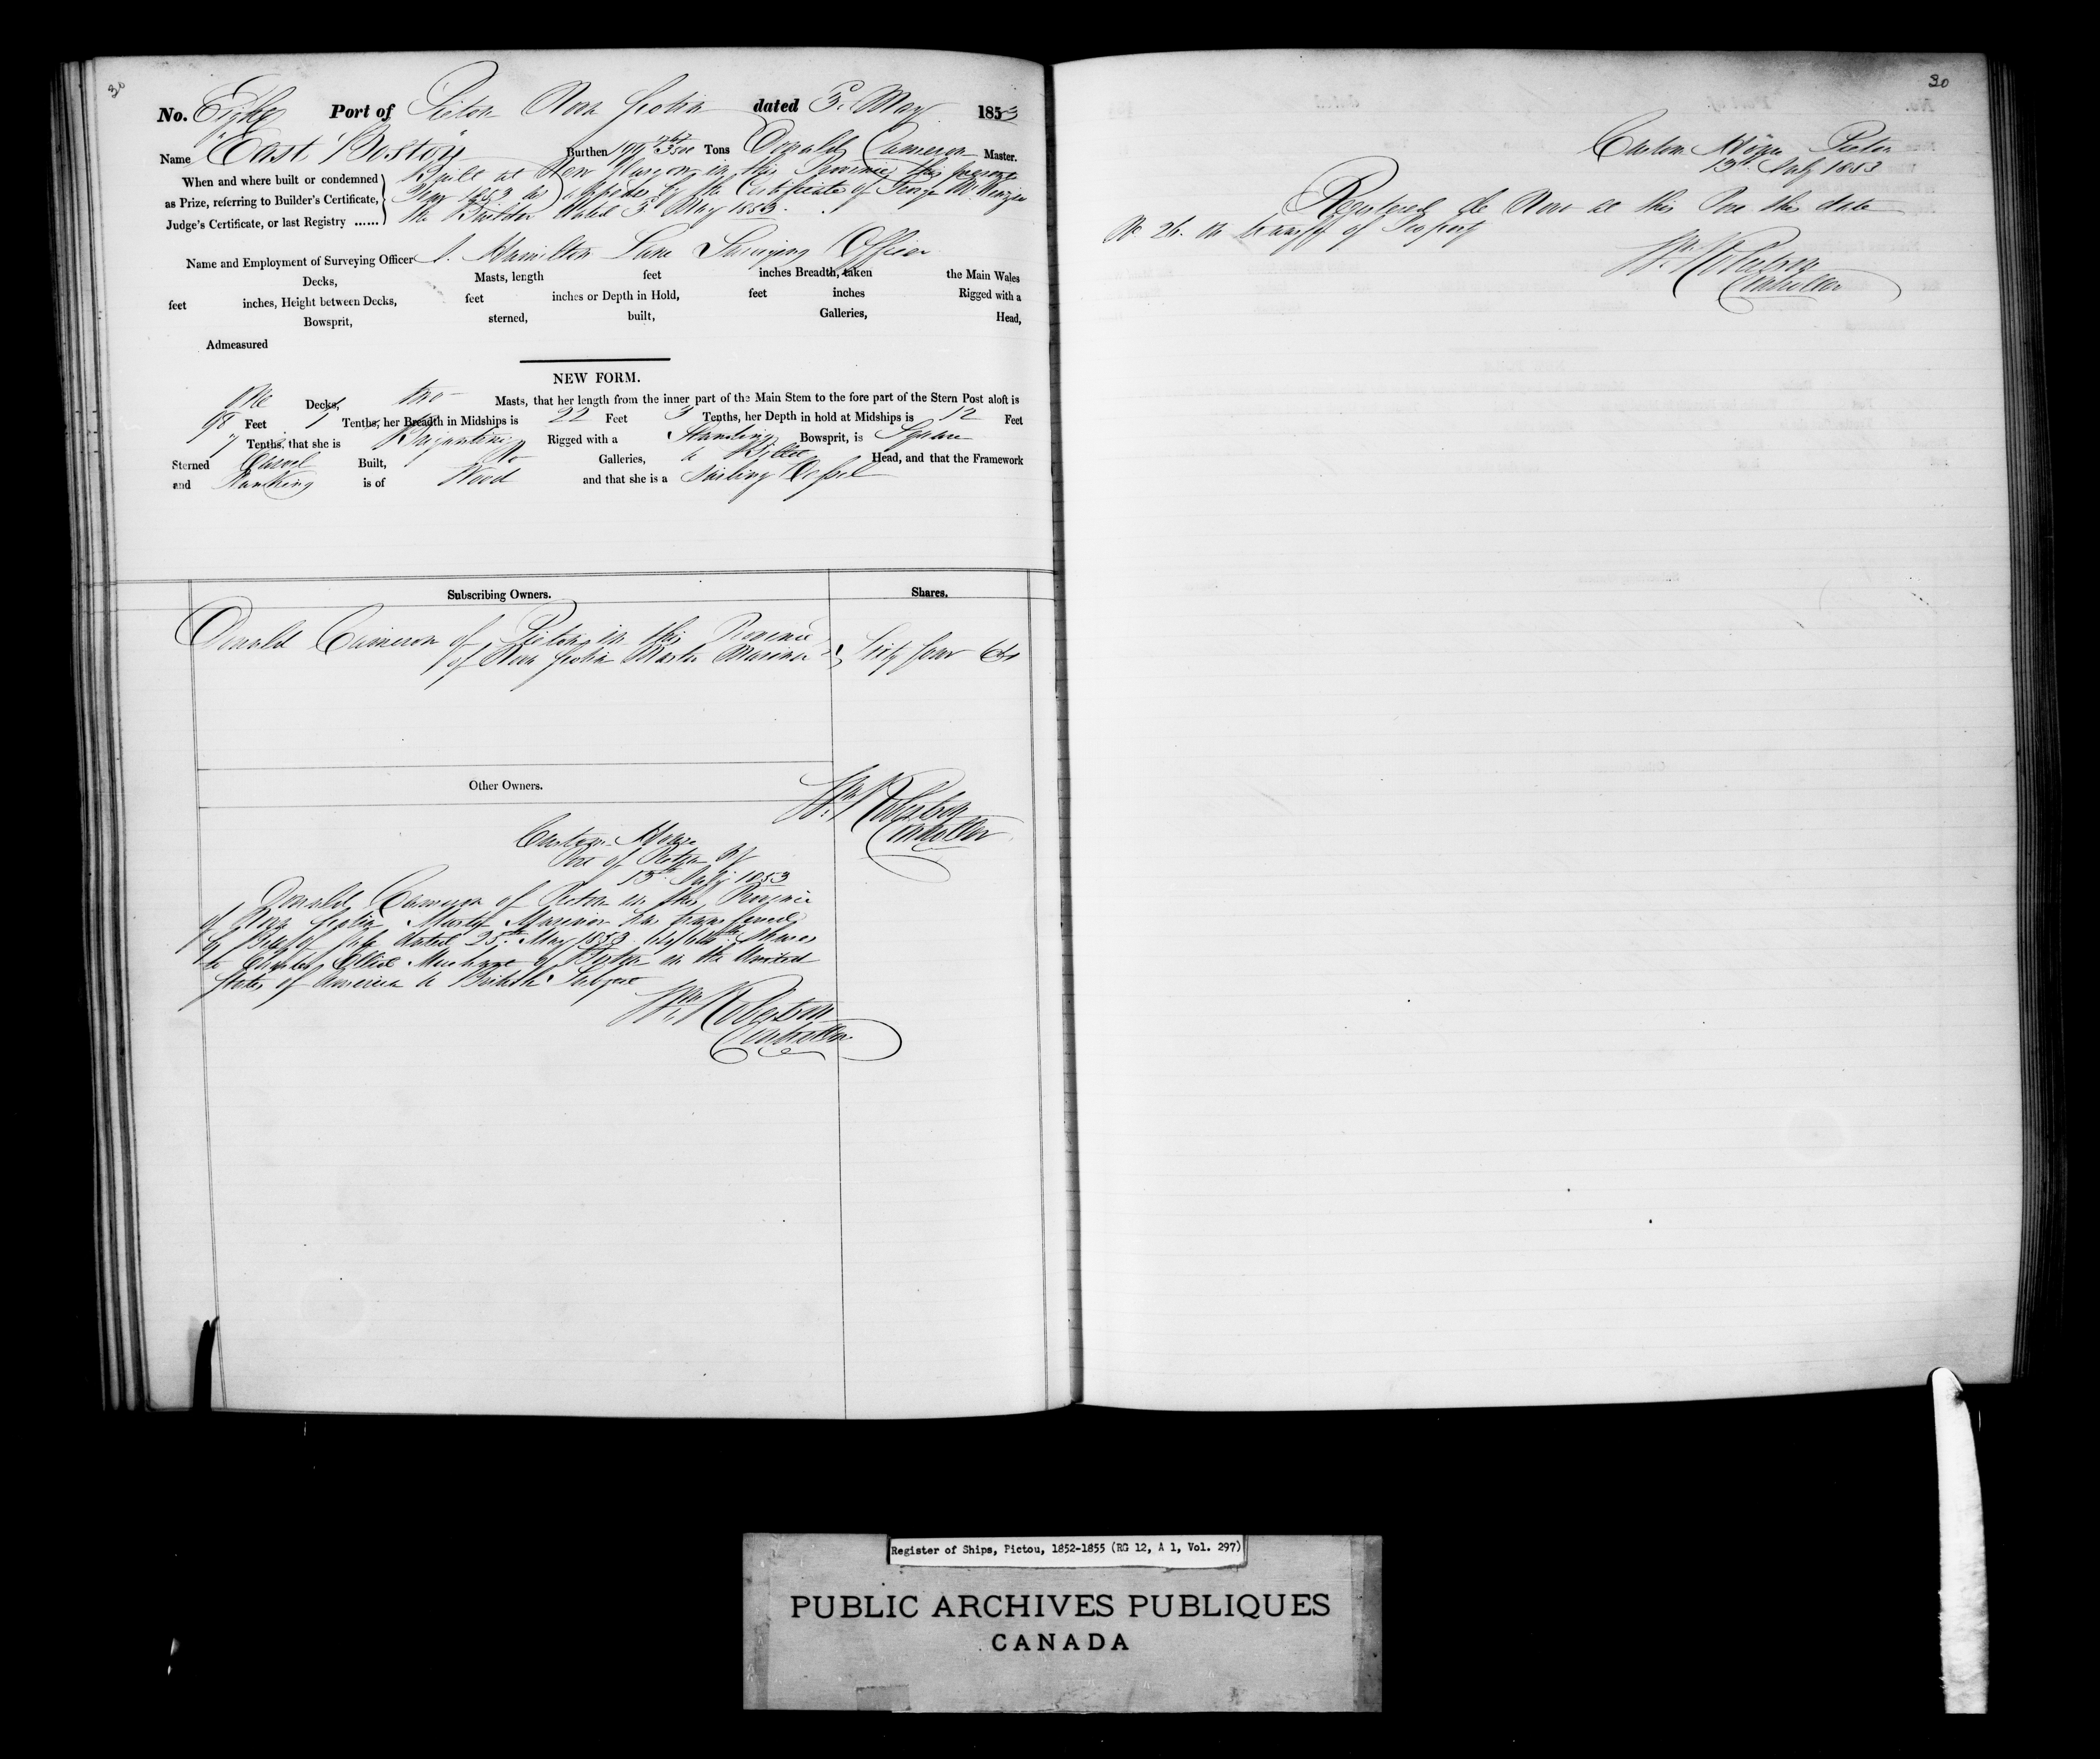 30
No. Eight Port of Pictou Nova Scotia dated 3d May 1853
Name "East Boston" Burthen Tons Donald Cameron Master.
When and where built or condemned as Prize, referring to Builder's Certificate, Judge's Certificate, or last Registry ......
Built at New Glasgow in this Province this present
Year 1853 as appears by the Certificate of George McKenzie
the Builder dated 3d May 1853.
Name and Employment of Surveying Officer J. Hamilton Lane Surveying Officer
Decks, Masts, length feet inches Breadth, taken the Main Wales
feet inches, Height between Decks, feet inches or Depth in Hold, feet inches Rigged with a
Bowsprit, sterned, built, Galleries, Head,
Admeasured
NEW FORM.
One Decks, two Masts, that her length from the inner part of the Main Stem to the fore part of the Stern Post aloft is
98 Feet 1 Tenths, her Breadth in Midships is 22 Feet 3 Tenths, her Depth in hold at Midships is 12 Feet
7 Tenths, that she is Brigantine Rigged with a Standing Bowsprit, is Square
Sterned Carvel Built, No Galleries, a Billet Head, and that the Framework
and Planking is of Wood and that she is a Sailing Vessel
Subscribing Owners. Shares.
Donald Cameron of Pictou in this Province
of Nova Scotia Master Mariner Sixty four 64
Other Owners.
Wm Robertson
Controller
Custom House
Port of Pictou N S
13th July 1853
Donald Cameron of Pictou in this Province
of Nova Scotia Master Mariner has transferred
by Bill of Sale dated 25th May 1853 64/64ths shares
to Charles Merchant of Boston in the United
States of America a British Subject
Wm Robertson
Controller
30
Custom House Pictou
13th July 1853
Registered de Novo at this Port this date
No. 26. on transfer of Property
Wm Robertson
Controller
Register of Ships, Pictou, 1852-1855 (RG 12, A 1, Vol. 297)
PUBLIC ARCHIVES PUBLIQUES
CANADA